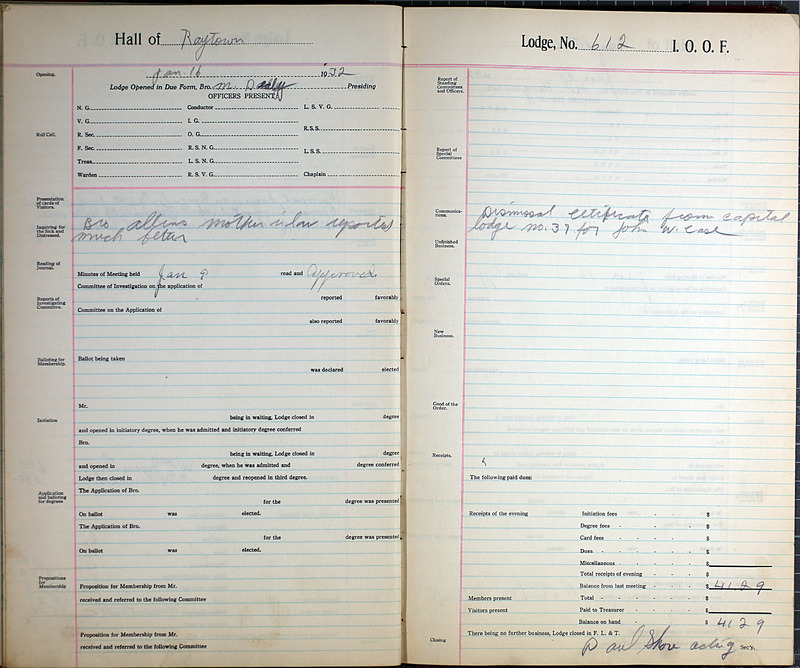 Hall of Raytown
Opening.
Jan. 16 1932
Lodge Opened in Due Form, Bro. M. Presiding
OFFICERS PRESENT
N. G. Conductor L. S. V. G.
V. G. I. G.
R.S.S.
Roll Call.
R. Sec. O. G.
F. Sec. R. S. N. G.
L.S.S.
Treas. L. S. N. G.
Warden R. S. V. G. Chaplain
Presentation of cards of Visitors.
Inquiring for the Sick and Distressed.
Bro alfins mother in law reported
much better
Reading of Journal.
Minutes of Meeting held Jan 9 read and Approved
Committee of Investigation on the application of
reported favorably
Reports of Investigating Committee.
Committee on the Application of
also reported favorably
Balloting for Membership.
Ballot being taken
was declared elected
Mr.
being in waiting, Lodge closed in degree
Initiation
and opened in initiatory degree, when he was admitted and initiatory degree conferred
Bro.
being in waiting, Lodge closed in degree
and opened in degree, when he was admitted and degree conferred
Lodge then closed in degree and reopened in third degree.
Application and balloting for degrees
The Application of Bro.
for the degree was presented
On ballot was elected.
The Application of Bro.
for the degree was presented
On ballot was elected.
Propositions for Membership
Proposition for Membership from Mr.
received and referred to the following Committee
Proposition for Membership from Mr.
received and referred to the following Committee
Lodge, No. 612 I. O. O. F.
Report of Standing Committees and Officers.
Report of Special Committees
Communications.
Dismissal certificate from capital
lodge no. 37 for John W. Case
Unfinished Business.
Special Orders.
New Business.
Good of the Order.
Receipts.
The following paid dues:
Receipts of the evening Initiation fees $
Degree fees $
Card fees $
Dues $
Miscellaneous $
Total receipts of evening $
Balance from last meeting $ 4129
Members present Total $
Visitors present Paid to Treasurer $
Balance on hand $ 4129
There being no further business, Lodge closed in F. L. & T.
Closing
Paul Shore acting Sec'y.